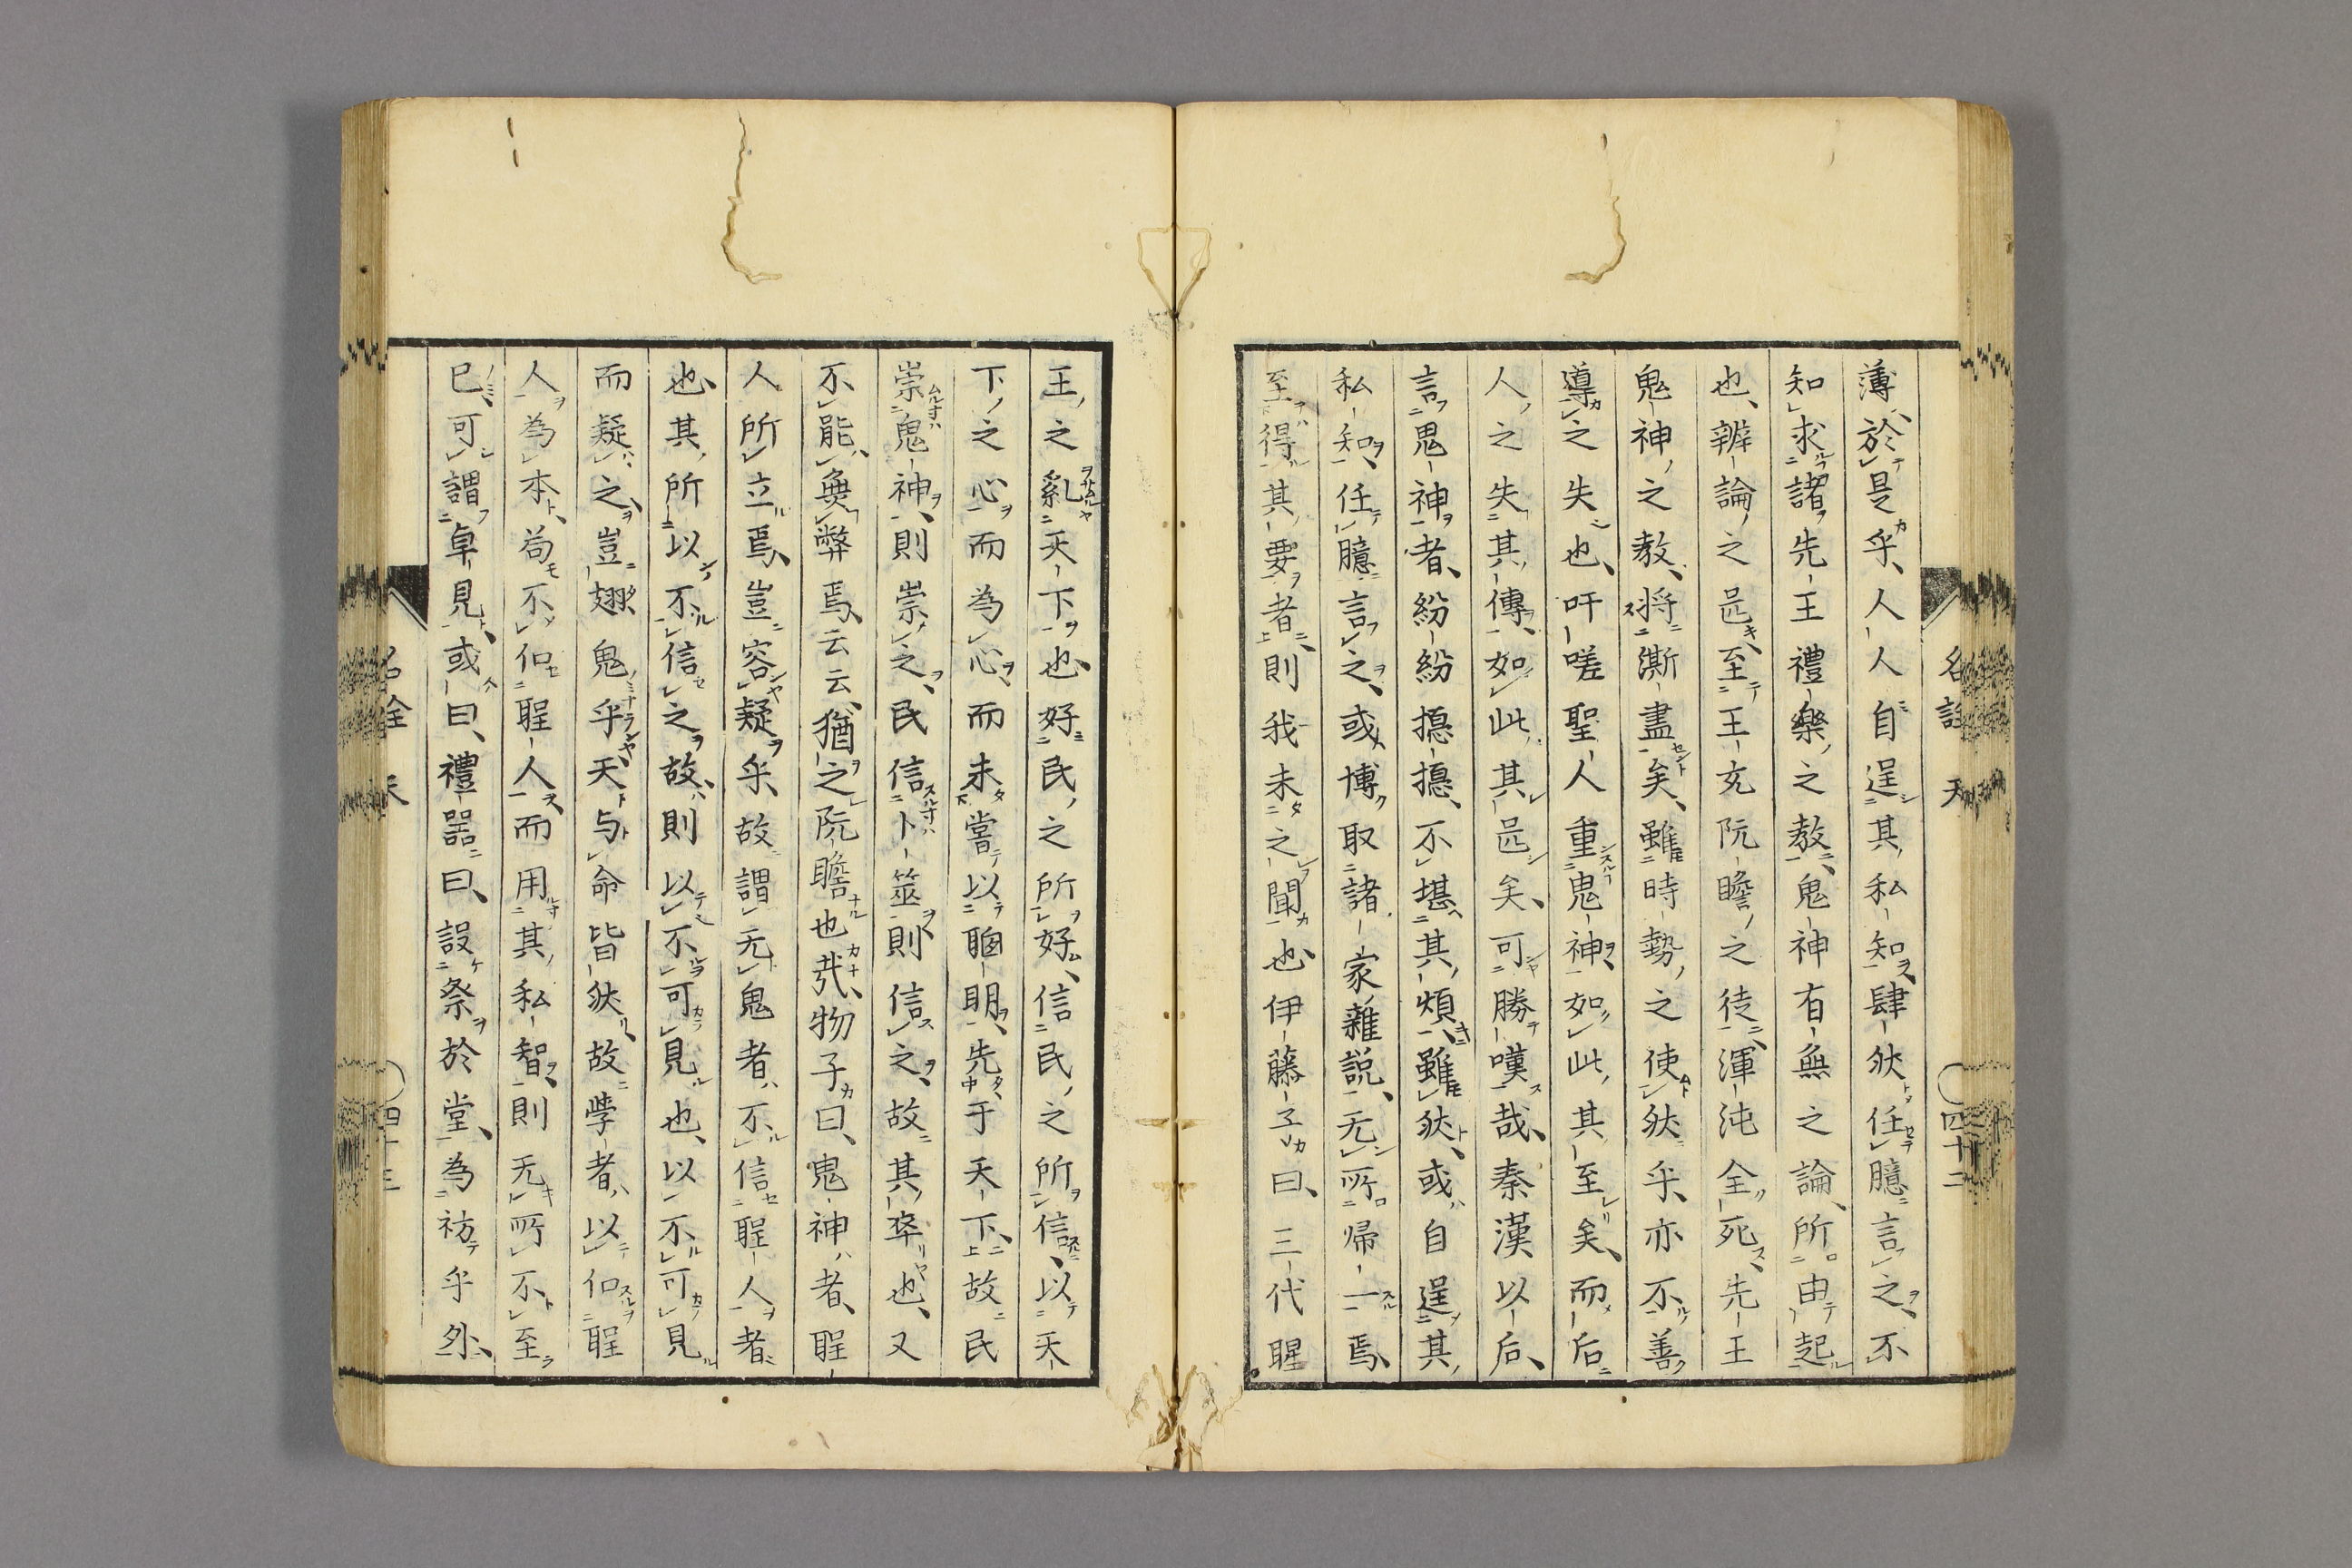 薄、於是乎、人人自逞其私知、肆然任臆言之、不
知求諸先王禮樂之教、鬼神有無之論、所由起
也、辨論之是、至王充阮瞻之徒、渾沌全死、先王
鬼神之教、将澌盡矣、雖時勢之使然乎、亦不善
導之失也、吁嗟聖人重鬼神如此、其至矣、而后
人之失其傳、如此其是矣、可勝嘆哉、秦漢以后、
言鬼神者、紛紛擾擾、不堪其煩、雖然、或自逞其
私知、任臆言之、或博取諸家雜説、无所帰一焉、
至得其要者、則我未之聞也、伊藤子曰、三代聖
王之亂天下也、好民之所好、信民之所信、以天
下之心而為心、而未嘗以聰明先于天下、故民
崇鬼神、則崇之、民信卜筮、則信之、故其卒也、又
不能無弊焉、云云、猶之阮瞻也哉、物子曰、鬼神者、聖
人所立焉、豈容疑乎、故謂无鬼者、不信聖人者
也、其所以不信之故、則以不可見也、以不可見
而疑之、豈翅鬼乎、天与命皆然、故學者以仰聖
人為本、苟不仰聖人、而用其私智、則无所不至
已、可謂卓見、或曰、禮器曰、設祭於堂、為祊乎外、
名詮 天 四十二